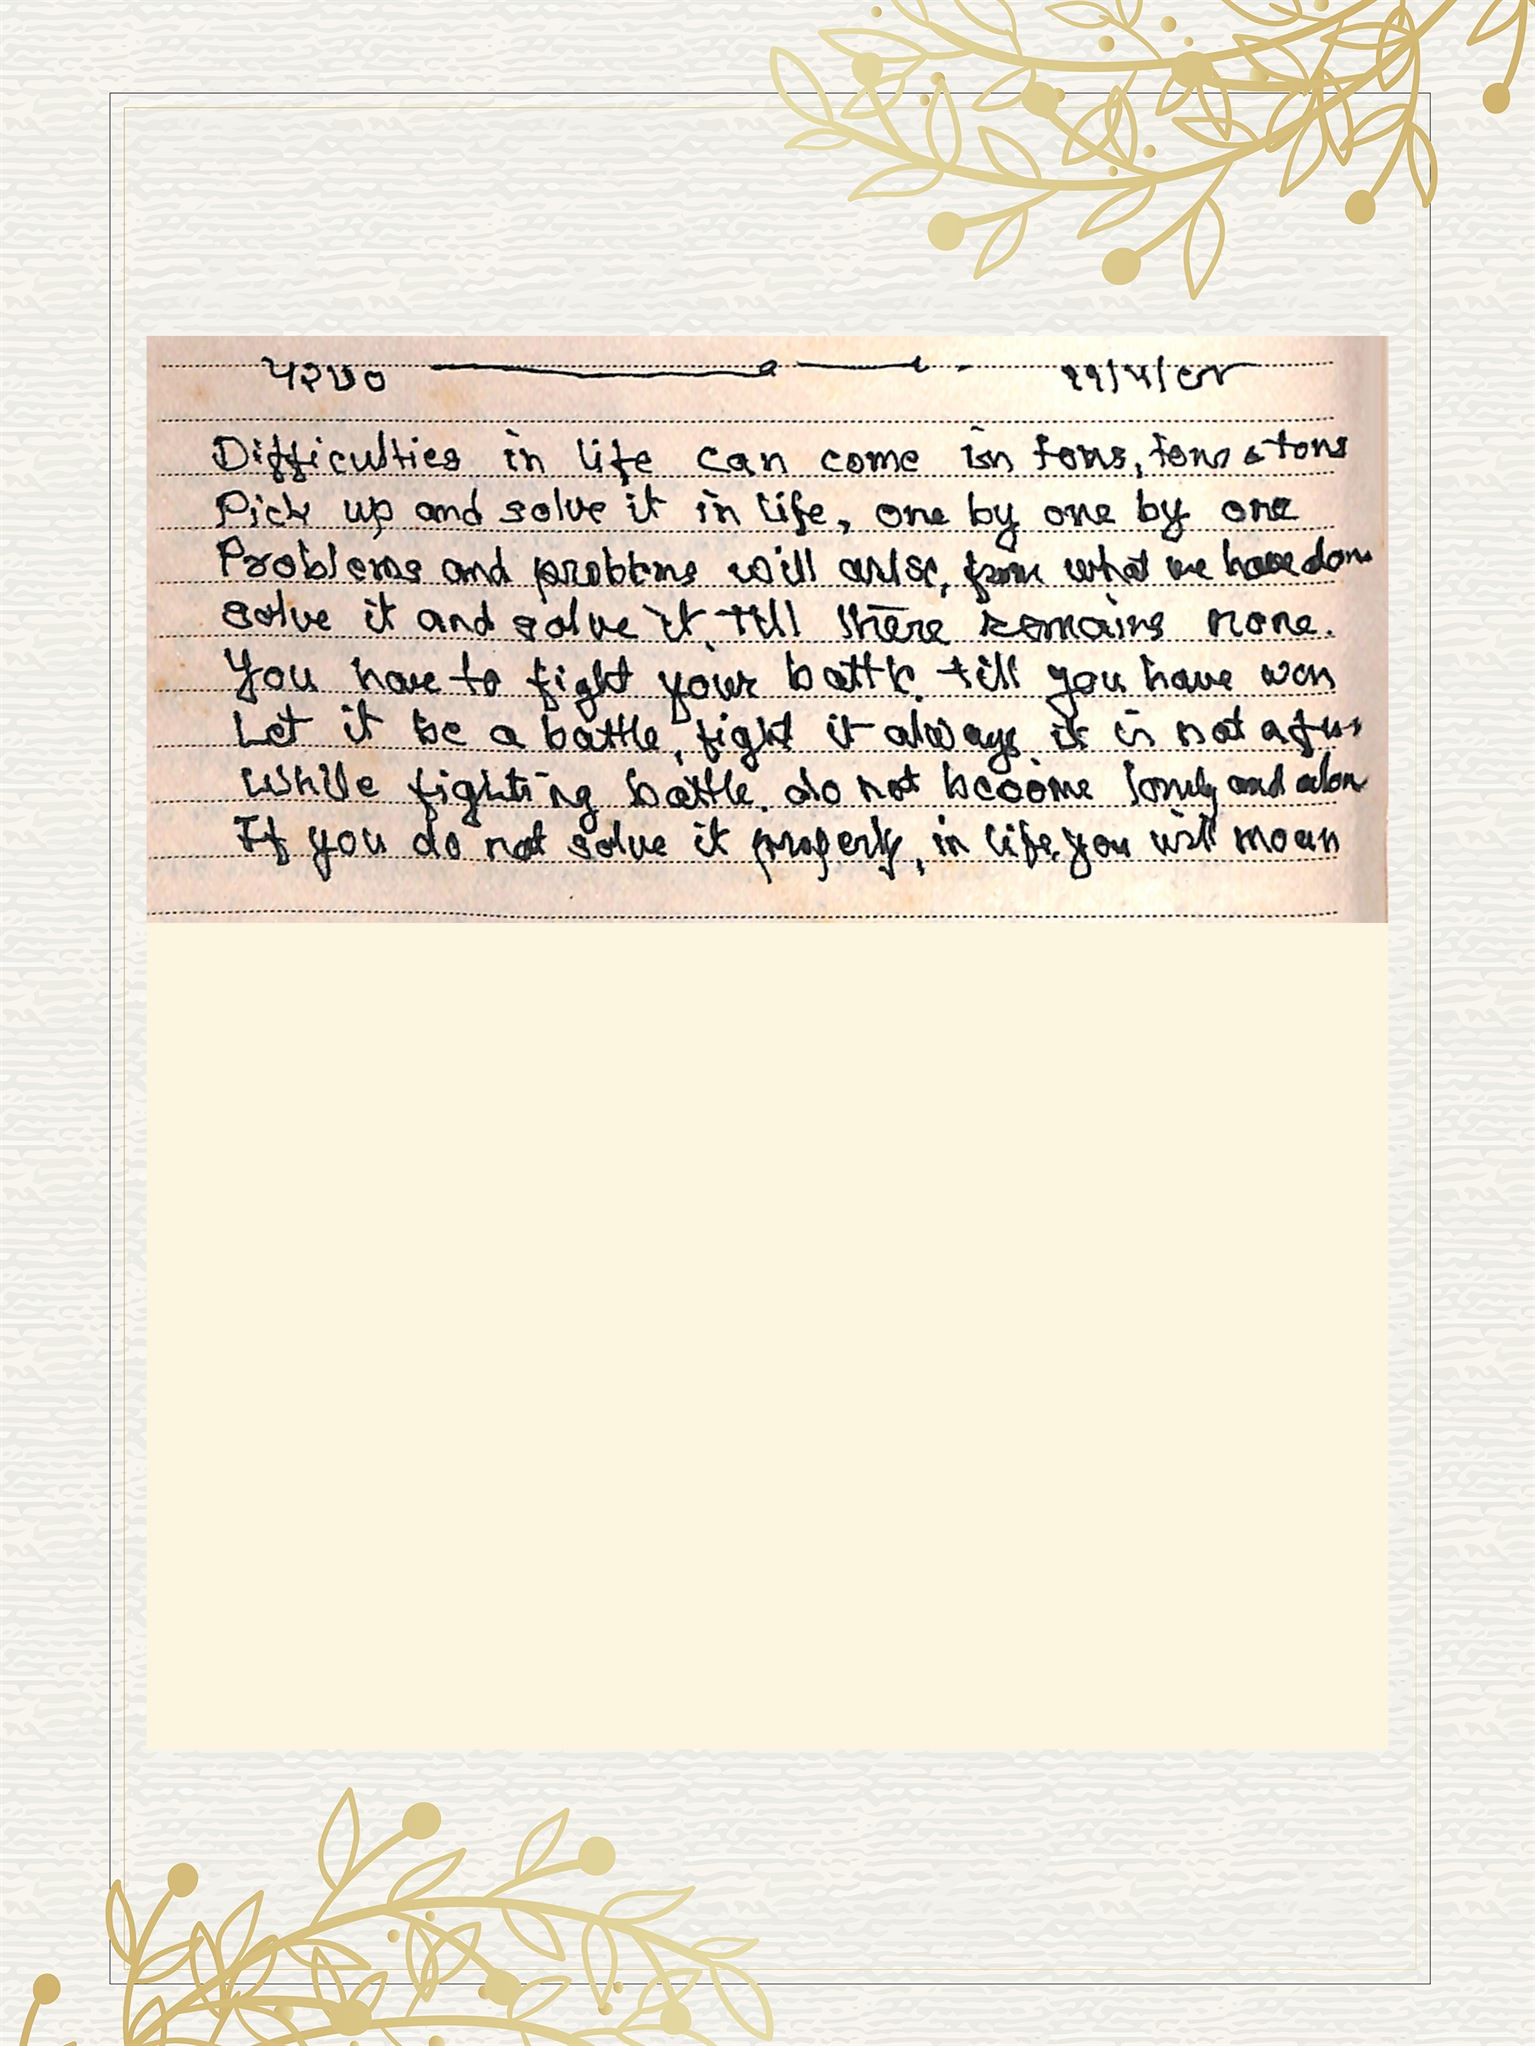 Difficulties in life can come in tons, tons & tons
Pick up and solve it in life, one by one by one
Problems and problems will arise, from what we have done
solve it and solve it, till there remains none.
You have to fight your battle, till you have won
Let it be a battle, fight it always it is not a fun
While fighting battle, do not become lonely and alone
If you do not solve it properly, in life you will moan